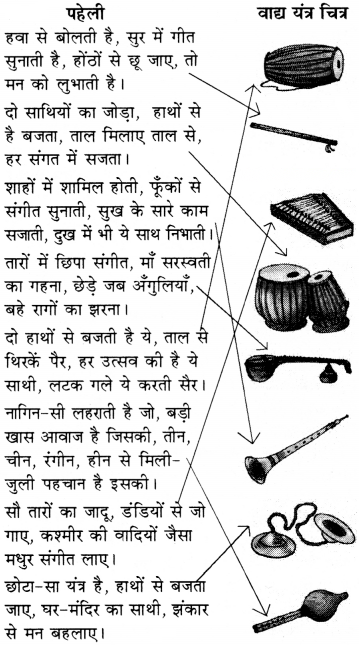 पहेली
वाद्य यंत्र चित्र
हवा से बोलती है, सुर में गीत
सुनाती है, होंठों से छू जाए, तो
मन को लुभाती है।
दो साथियों का जोड़ा, हाथों से
है बजता, ताल मिलाए ताल से,
हर संगत में सजता।
शाहों में शामिल होती, फूँकों से
संगीत सुनाती, सुख के सारे काम
सजाती, दुख में भी ये साथ निभाती।
तारों में छिपा संगीत, माँ सरस्वती
का गहना, छेड़े जब अँगुलियाँ,
बहे रागों का झरना।
दो हाथों से बजती है ये, ताल से
थिरकें पैर, हर उत्सव की है ये
साथी, लटक गले ये करती सैर।
नागिन-सी लहराती है जो, बड़ी
खास आवाज है जिसकी, तीन,
चीन, रंगीन, हीन से मिली-
जुली पहचान है इसकी।
सौ तारों का जादू, डंडियों से जो
गाए, कश्मीर की वादियों जैसा
मधुर संगीत लाए।
छोटा-सा यंत्र है, हाथों से बजता
जाए, घर-मंदिर का साथी, झंकार
से मन बहलाए।